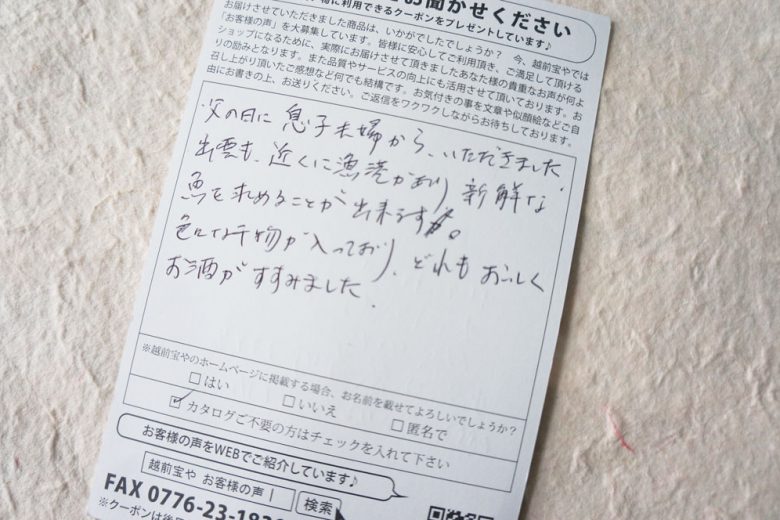 お聞かせください
物に利用できるクーポンをプレゼントしています♪
お届けさせていただきました商品は、いかがでしたでしょうか？　今、越前宝やでは
「お客様の声」を大募集しています。皆様に安心してご利用頂き、ご満足して頂ける
ショップになるために、実際にお届けさせて頂きましたあなた様の貴重なお声が何よ
りの励みとなります。また品質やサービスの向上にも活用させて頂いております。お
召し上がり頂いたご感想など何でも結構です。お気付きの事を文章や似顔絵などご自
由にお書きの上、お送りください。ご返信をワクワクしながらお待ちしております。
父の日に 息子夫婦から、いただきました。
出雲も、近くに漁港があり 新鮮な
魚を求めることが出来ます。
色々な干物が入っており、どれもおいしく
お酒がすすみました。
※越前宝やのホームページに掲載する場合、お名前を載せてよろしいでしょうか？
□はい □いいえ □匿名で
☑カタログご不要の方はチェックを入れて下さい
お客様の声をWEBでご紹介しています♪
越前宝や お客様の声 検索
FAX 0776-23-18
※クーポンは後